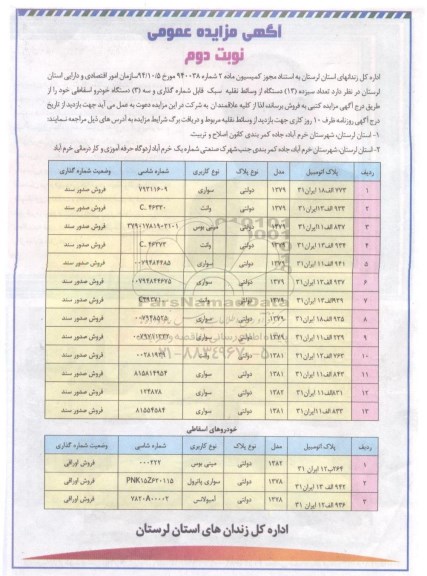 آگهی مزایده عمومی
نوبت دوم
اداره کل زندانهای استان لرستان به استناد مجوز کمیسیون ماده ۲ شماره ۹۴۰۰۳۸ مورخ ۹۴/۱۰/۵ سازمان امور اقتصادی و دارایی استان
لرستان در نظر دارد تعداد سیزده (۱۳) دستگاه از وسائط نقلیه سبک قابل شماره گذاری و سه (۳) دستگاه خودرو اسقاطی خود را از
طریق درج آگهی مزایده کتبی به فروش برساند، لذا از کلیه علاقمندان به شرکت در این مزایده دعوت به عمل می آید جهت بازدید از تاریخ
درج آگهی روزنامه ظرف ۱۰ روز کاری جهت بازدید از وسائط نقلیه مربوط و دریافت برگ شرایط مزایده به آدرس های ذیل مراجعه نمایند:
۱- استان لرستان، شهرستان خرم آباد، جاده کمربندی کانون اصلاح و تربیت.
۲- استان لرستان، شهرستان خرم آباد، جاده کمربندی جنب شهرک صنعتی شماره یک خرم آباد اردوگاه حرفه آموزی و کار درمانی خرم آباد
ردیف پلاک اتومبیل مدل نوع پلاک نوع کاربری شماره شاسی وضعیت شماره گذاری
۱ ۷۷۳الف۱۸ ایران۳۱ ۱۳۷۹ دولتی سواری ۷۹۳۱۱۶۰۹ فروش صدور سند
۲ ۹۳۳الف۱۳ایران۳۱ ۱۳۷۹ دولتی وانت C. ۴۶۳۳۰ فروش صدور سند
۳ ۸۳۷الف۱۱ایران۳۱ ۱۳۷۹ دولتی مینی بوس فروش صدور سند
۴ ۹۳۴الف۱۳ ایران۳۱ ۱۳۷۹ دولتی وانت C. ۴۶۳۷۳ فروش صدور سند
۵ ۹۴۱الف۱۱ ایران۳۱ ۱۳۷۹ دولتی سواری ۰۰۷۹۴۸۴۲۸۵ فروش صدور سند
۶ ۹۳۷الف۱۳ ایران۳۱ ۱۳۷۹ دولتی سواری ۰۰۷۹۴۸۴۴۶۷۵ فروش صدور سند
۷ ۹۳۹الف۱۳ ایران۳۱ دولتی وانت فروش صدور سند
۸ ۹۳۵الف۱۸ ایران۳۱ ۱۳۷۹ دولتی سواری فروش صدور سند
۹ ۲۳۹الف۱۱ ایران۳۱ ۱۳۷۹ دولتی سواری فروش صدور سند
۱۰ ۷۶۳الف۱۲ ایران۳۱ ۱۳۸۱ دولتی وانت ۰۰۲۸۱۹۳۹ فروش صدور سند
۱۱ ۸۴۳الف۱۱ ایران۳۱ ۱۳۸۱ دولتی سواری ۸۱۵۸۱۴۹۵۴ فروش صدور سند
۱۲ ۸۳۱الف۱۱ ایران۳۱ ۱۳۸۲ دولتی سواری ۱۲۴۸۷۸ فروش صدور سند
۱۳ ۸۳۳الف۱۱ایران۳۱ ۱۳۸۱ دولتی سواری ۸۱۵۵۴۵۸۴ فروش صدور سند
خودروهای اسقاطی
ردیف پلاک اتومبیل مدل نوع پلاک نوع کاربری شماره شاسی وضعیت شماره گذاری
۱ ۲۶۴ب۱۲ ایران ۳۱ ۱۳۸۲ دولتی مینی بوس ۰۰۰۲۲۲ فروش اوراقی
۲ ۹۴۲ الف ۱۳ ایران ۳۱ ۱۳۷۸ دولتی سواری پاترول PNK۱۵Z۶۲۰۱۱۵ فروش اوراقی
۳ ۹۳۶ الف ۱۲ ایران ۳۱ ۱۳۷۸ دولتی آمبولانس ۷۸۲۰۸۰۰۰۰۲ فروش اوراقی
اداره کل زندان های استان لرستان